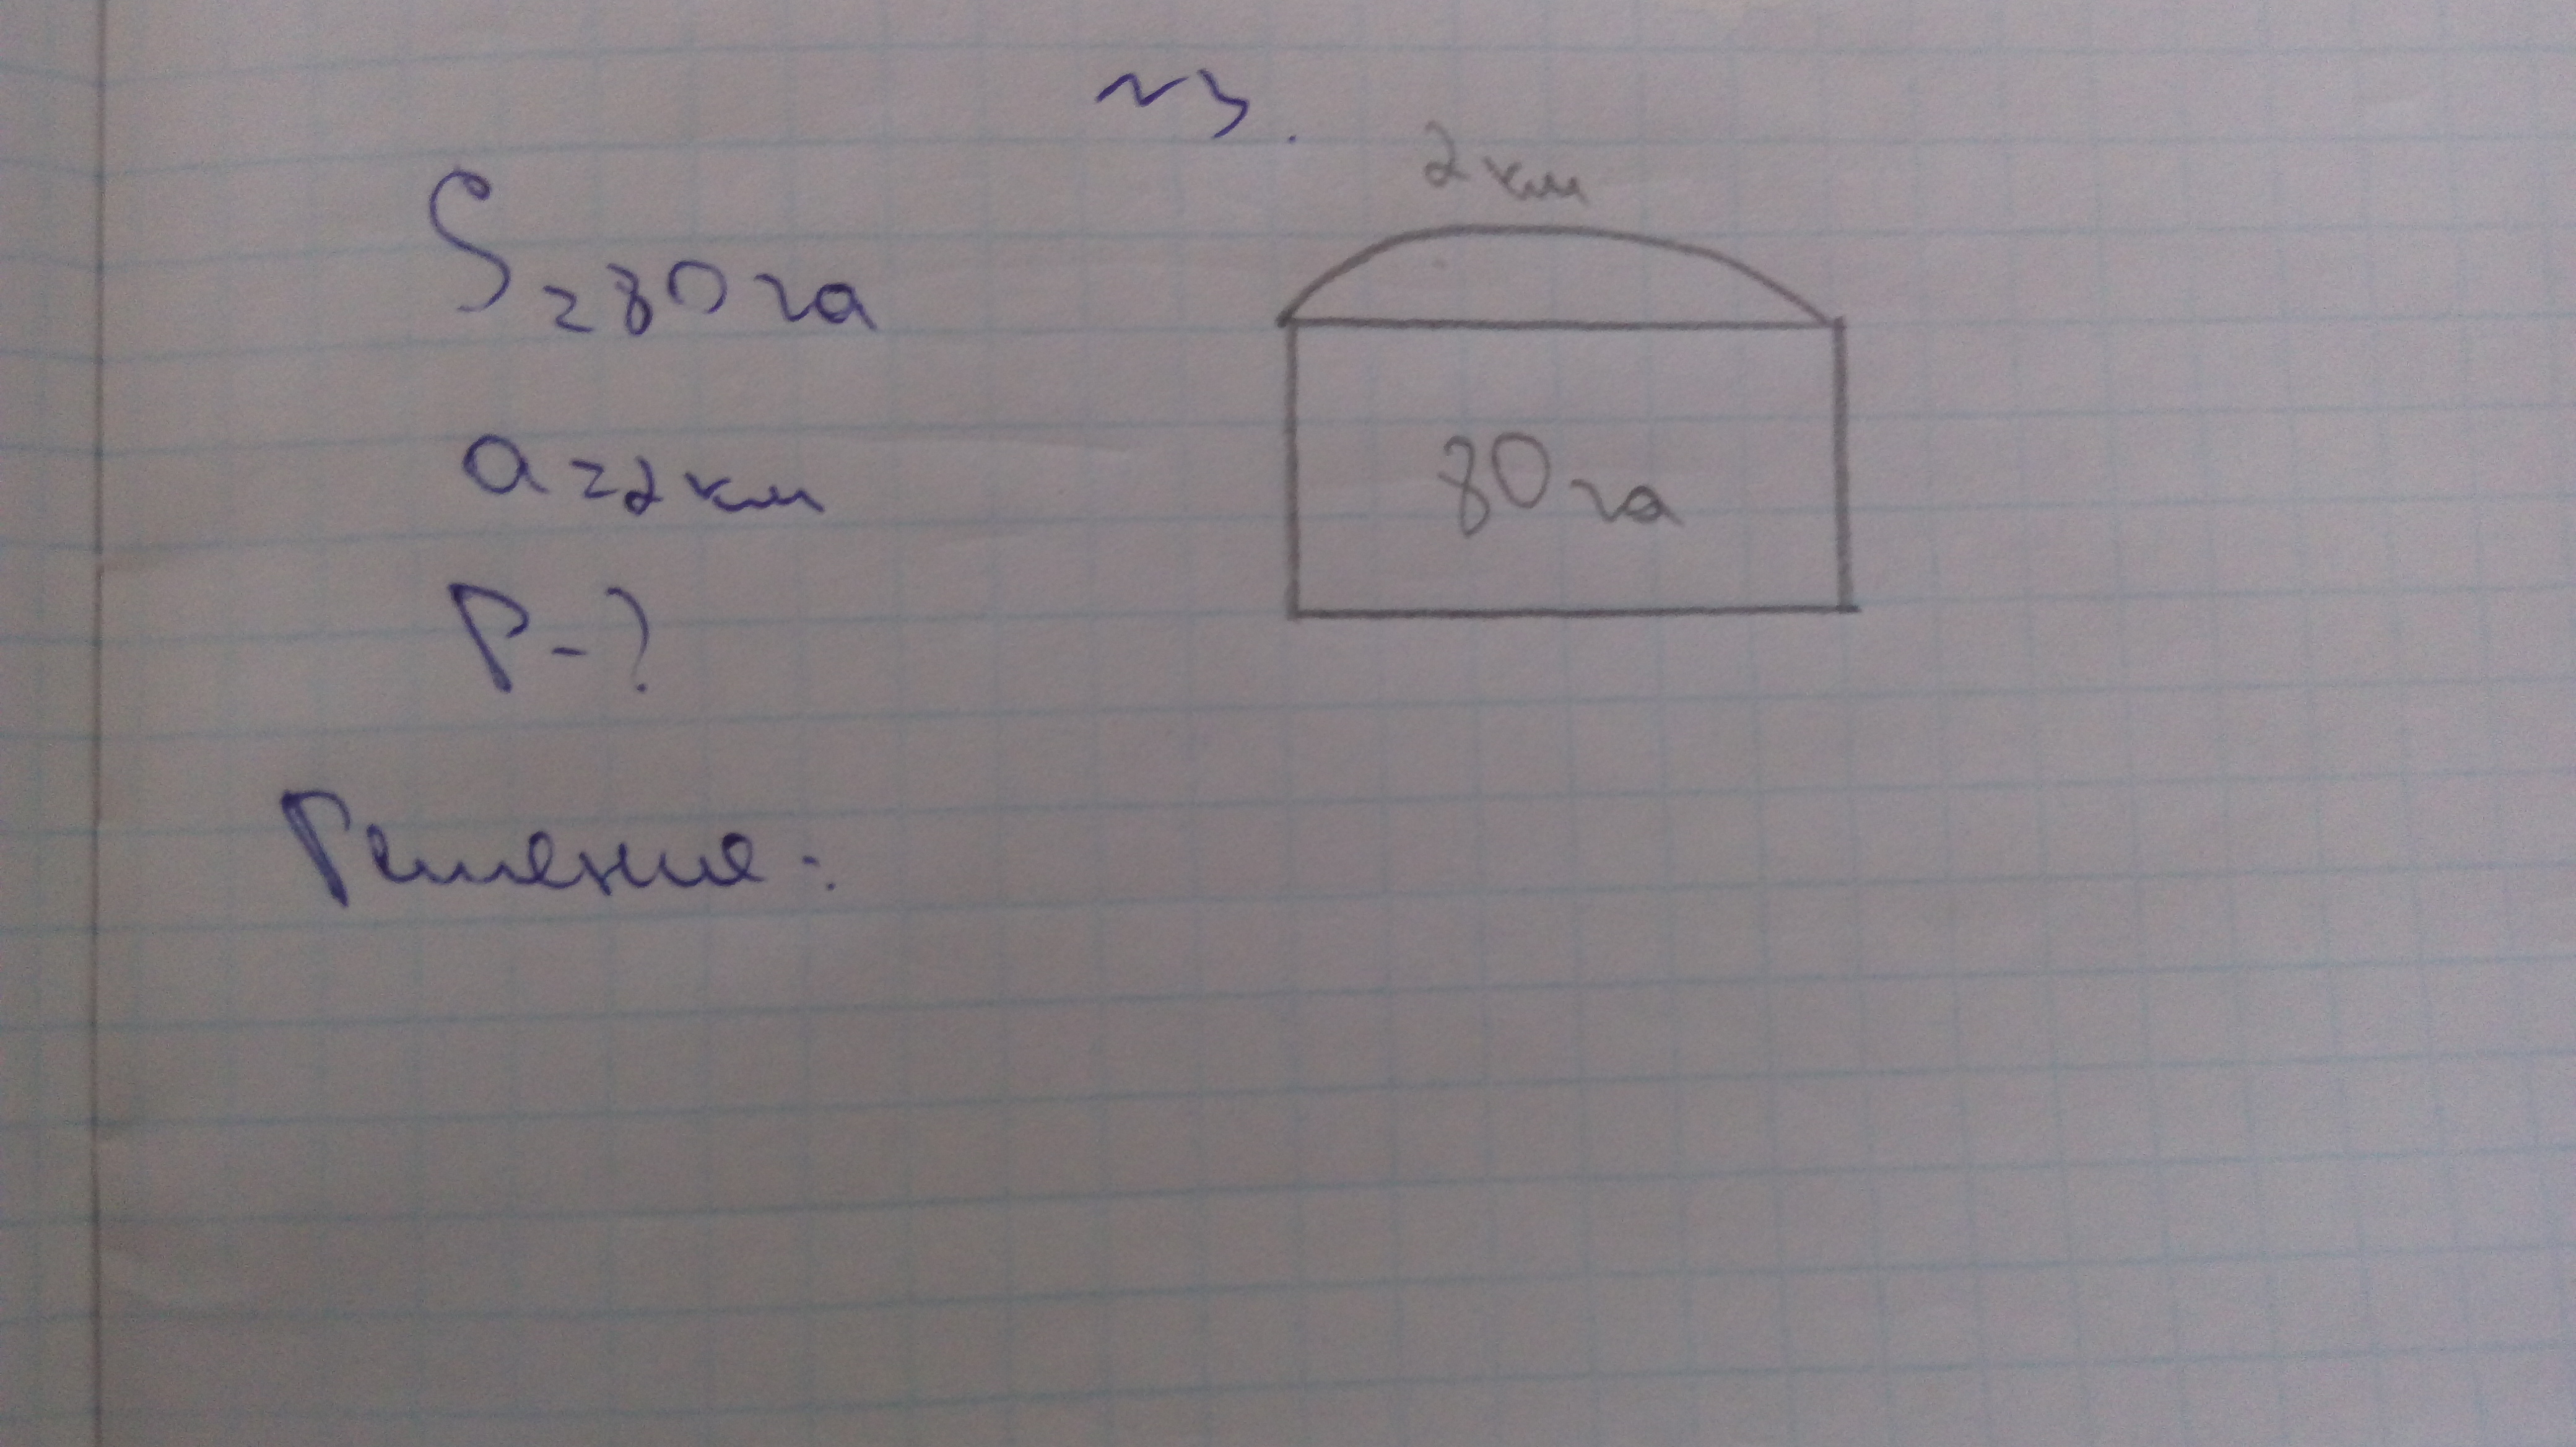 №3.
2 км
S=80 га
a=2км
80 га
P-?
Решение: